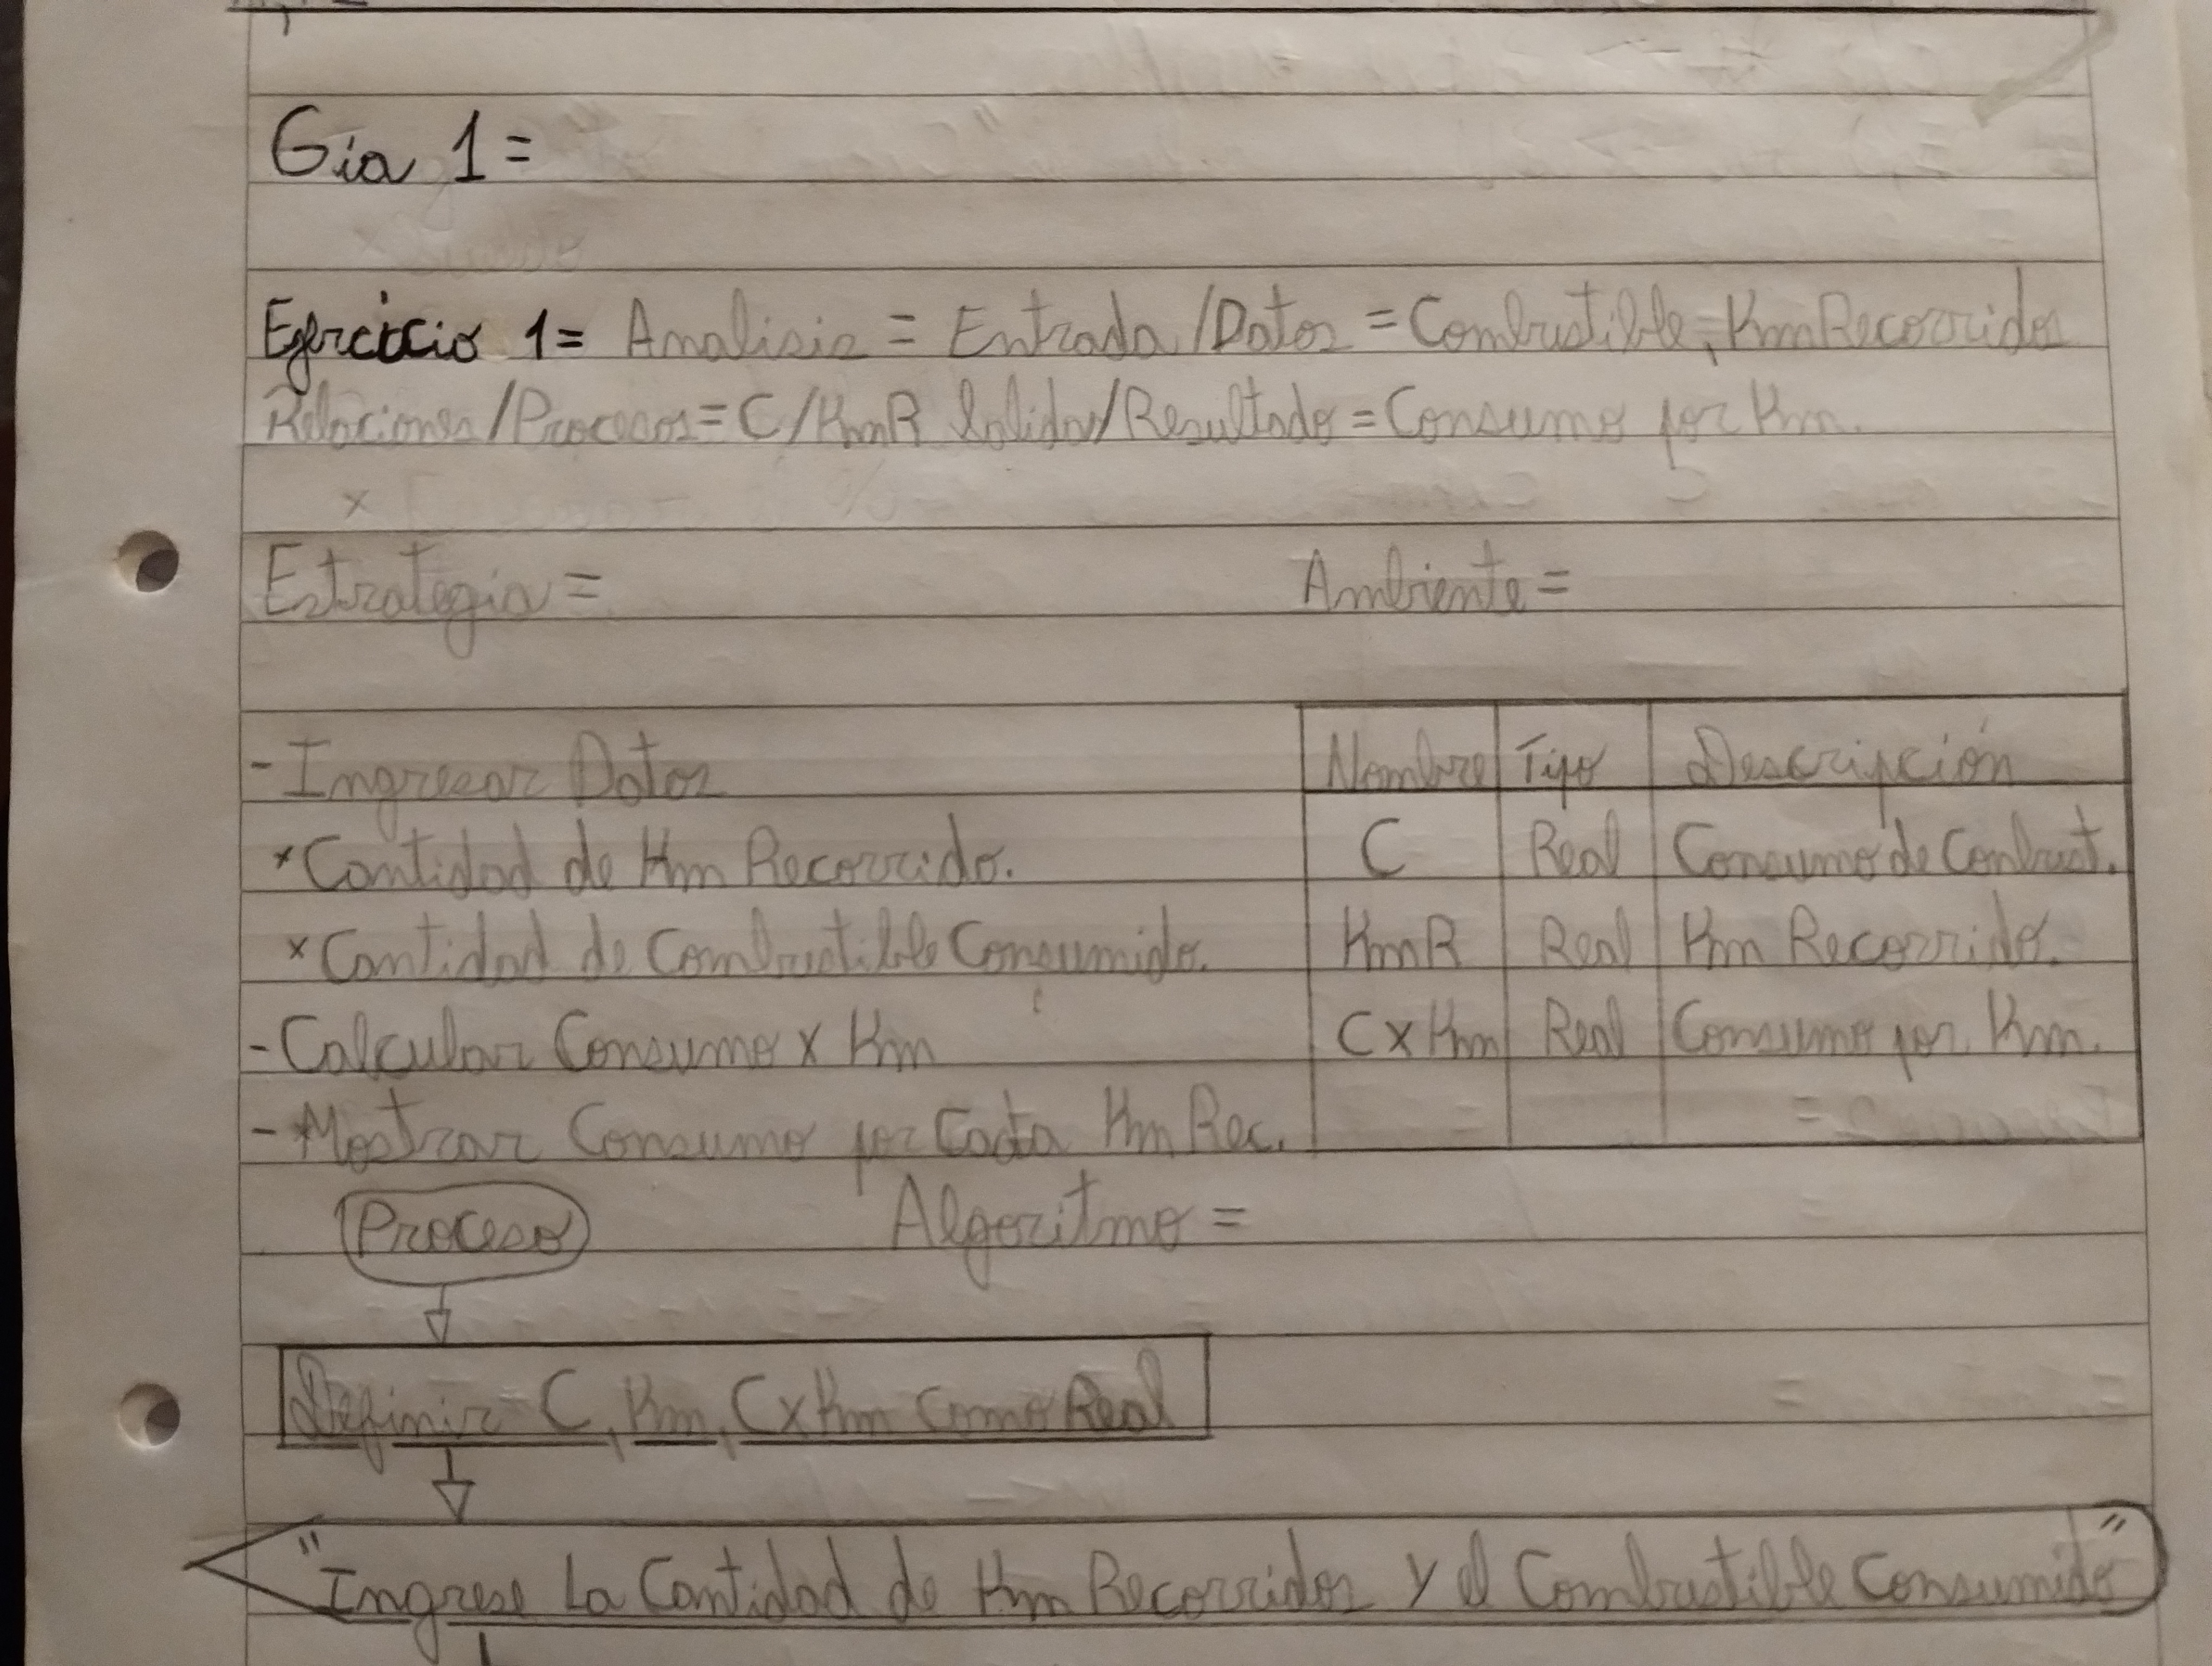 Gia 1=
Ejercicio 1= Analisis = Entrada/Datos = Combustible, KmRecorridos
Relaciones/Procesos=C/KmR Salida/Resultado=Consumo por Km.
Estrategia =
Ambiente =
- Ingresar Datos
* Cantidad de Km Recorrido.
x Cantidad de Combustible Consumido.
- Calcular Consumo x Km
- Mostrar Consumo por Cada Km Rec.
Nombre Tipo Descripción
C Real Consumo de Combust.
KmR Real Km Recorrido.
CxKm Real Consumo por Km.
Proceso
Algoritmo =
Definir C, Km, CxKm Como Real
"Ingrese La Cantidad de Km Recorridos y el Combustible Consumido"